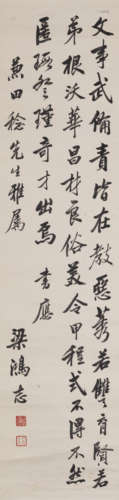 文事武備青皆在教惡莠若讎育賢若
弟根沃華昌材良俗美令甲程式不得不然
匿瑕奚瑾奇才出焉 書應
蕙田稔先生雅屬
梁鴻志